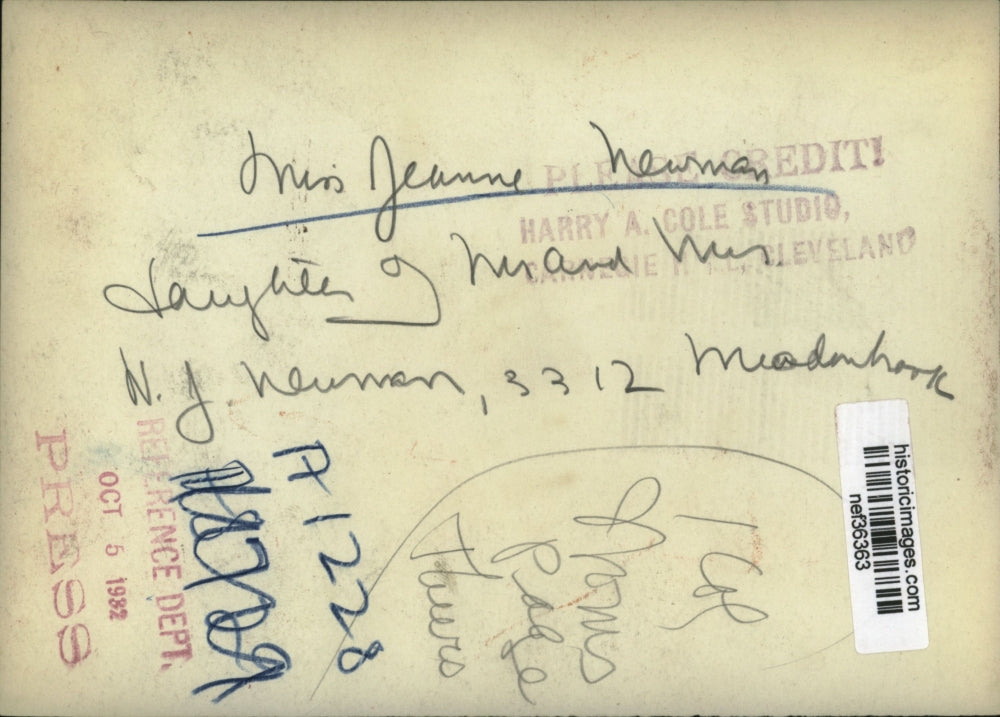 Miss Jeanne Newman
PLEASE CREDIT!
HARRY A. COLE STUDIO,
CARNEGIE HALL, CLEVELAND
daughter of Mr and Mrs.
N. J. Newman, 3312 Meadowbrook
PRESS
OCT 5 1982
REFERENCE DEPT.
A 1228
1 Col
Woms
Page
Thurs
historicimages.com
nef36363